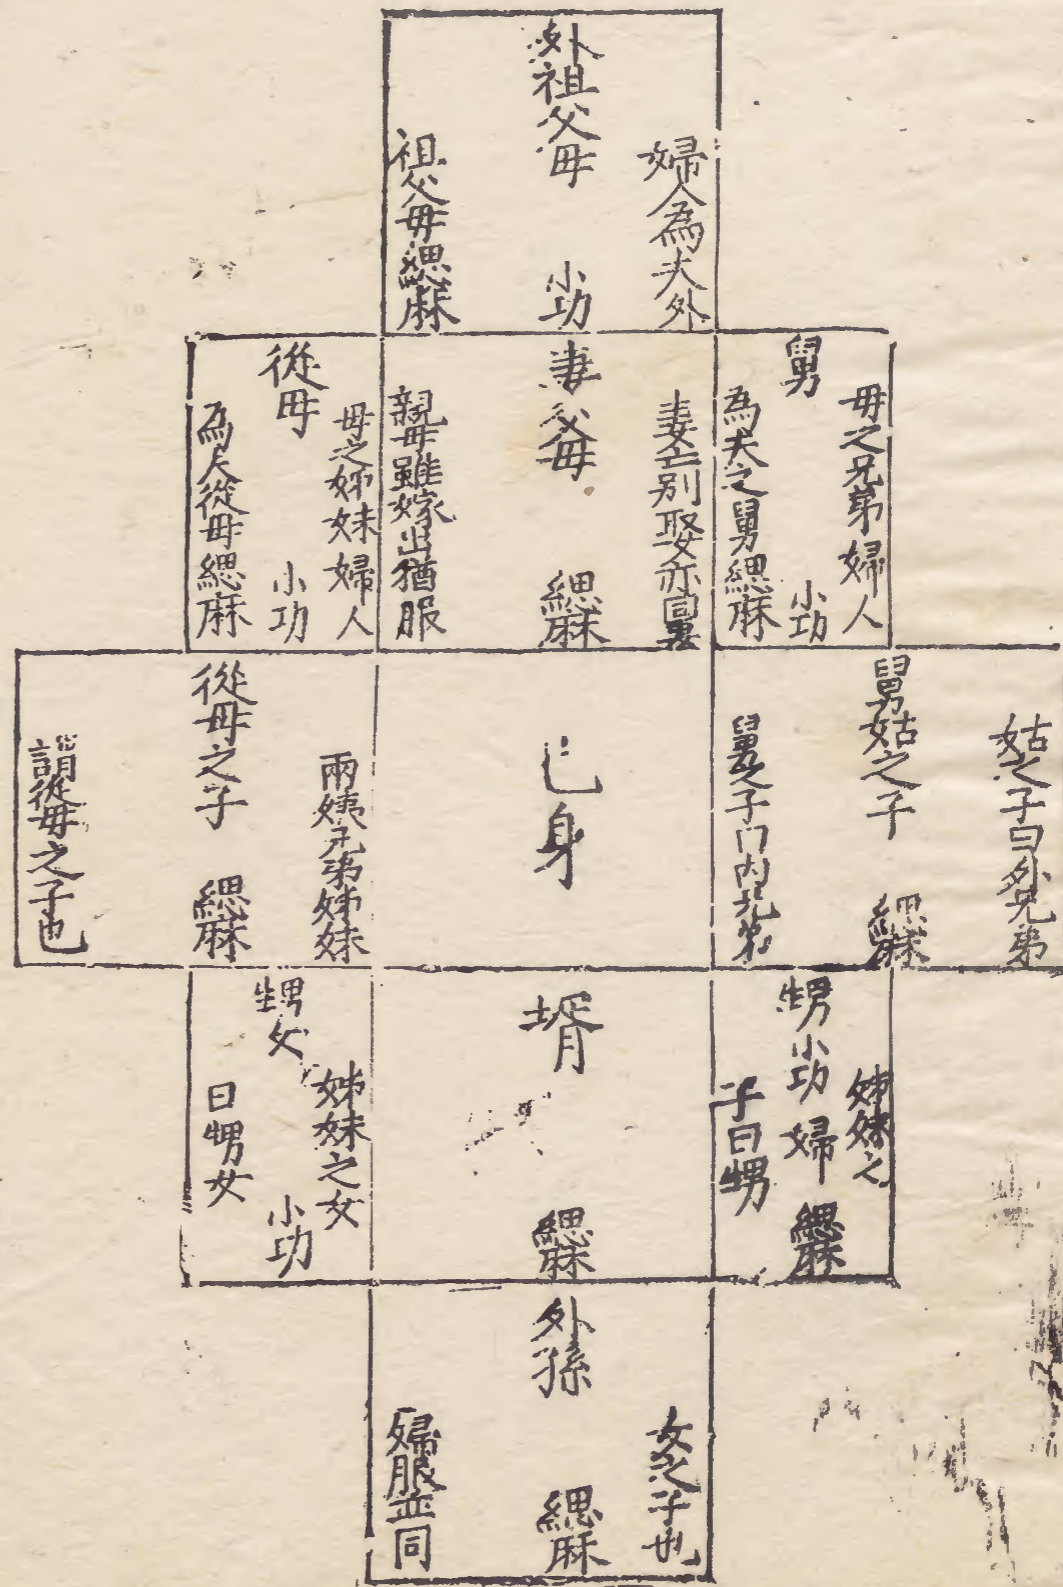 婦人為夫外
外祖父母 小功
祖父母緦麻
母之兄弟婦人
舅 小功
為夫之舅緦麻
妻亡別娶亦同妻
妻父母 緦麻
親母雖嫁出猶服
母之姊妹婦人
從母 小功
為夫從母緦麻
姑之子曰外兄弟
舅姑之子 緦麻
舅之子曰內兄弟
己身
兩姨兄弟姊妹
從母之子 緦麻
謂從母之子也
姊妹之
甥小功 婦緦麻
子曰甥
壻 緦麻
姊妹之女
甥女 小功
曰甥女
女之子也
外孫 緦麻
婦服並同